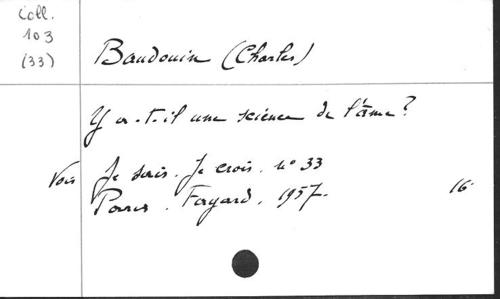 Coll.
103
(33)
Baudouin (Charles)
Y a-t-il une science de l'âme?
Voir Je sais. Je crois. n° 33
Paris. Fayard. 1957. 16.